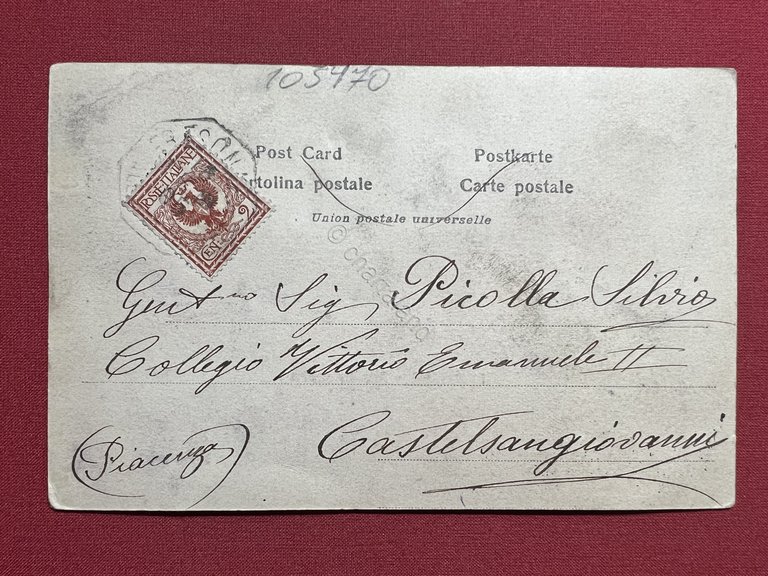 105470
Post Card Postkarte
Cartolina postale Carte postale
Union postale universelle
POSTE ITALIANE
2
CEN
Gent.mo Sig Picolla Silvio
Collegio Vittorio Emanuele II
Castelsangiovanni
(Piacenza)